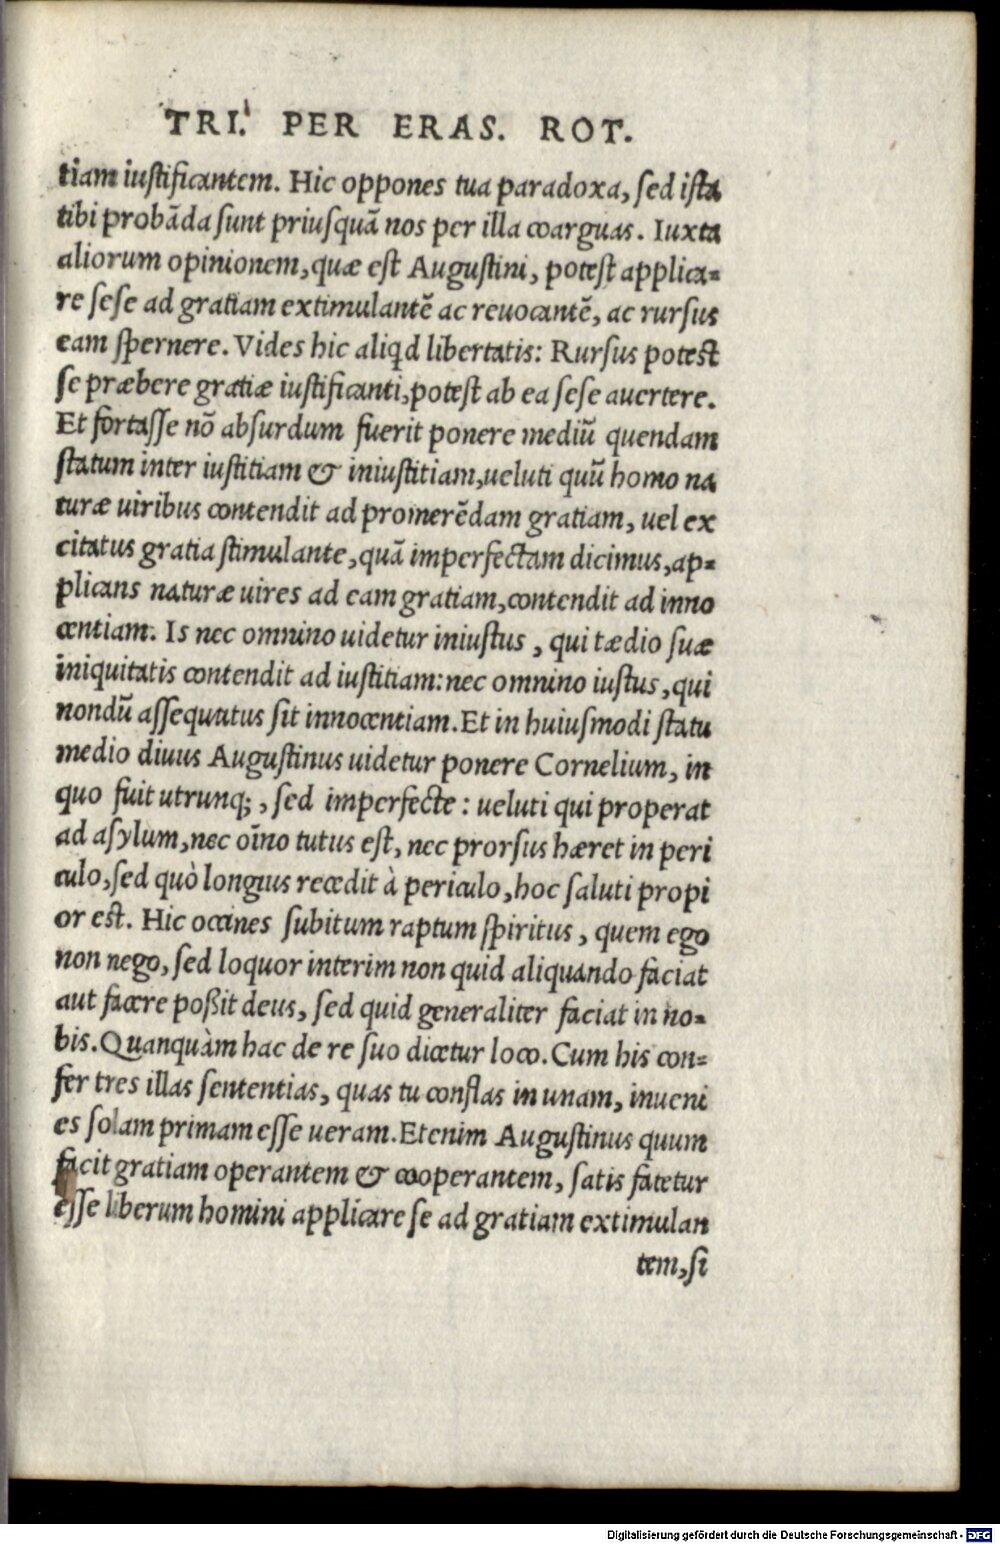 TRI. PER ERAS. ROT.
tiam iustificantem. Hic oppones tua paradoxa, sed ista
tibi probãda sunt priusquã nos per illa coarguas. Iuxta
aliorum opinionem, quæ est Augustini, potest applica-
re sese ad gratiam extimulantẽ ac reuocantẽ, ac rursus
eam spernere. Vides hic aliqd libertatis: Rursus potest
se præbere gratiæ iustificanti, potest ab ea sese auertere.
Et fortasse nõ absurdum fuerit ponere mediũ quendam
statum inter iustitiam & iniustitiam, ueluti quũ homo na
turæ uiribus contendit ad promerẽdam gratiam, uel ex
citatus gratia stimulante, quã imperfectam dicimus, ap-
plicans naturæ uires ad eam gratiam, contendit ad inno
centiam. Is nec omnino uidetur iniustus, qui tædio suæ
iniquitatis contendit ad iustitiam: nec omnino iustus, qui
nondũ assequutus sit innocentiam. Et in huiusmodi statu
medio diuus Augustinus uidetur ponere Cornelium, in
quo fuit utrunq;, sed imperfecte: ueluti qui properat
ad asylum, nec oĩno tutus est, nec prorsus hæret in peri
culo, sed quò longius recedit à periculo, hoc saluti propi
or est. Hic occines subitum raptum spiritus, quem ego
non nego, sed loquor interim non quid aliquando faciat
aut facere poßit deus, sed quid generaliter faciat in no-
bis. Quanquàm hac de re suo dicetur loco. Cum his con-
fer tres illas sententias, quas tu conflas in unam, inueni
es solam primam esse ueram. Etenim Augustinus quum
facit gratiam operantem & cooperantem, satis fatetur
esse liberum homini applicare se ad gratiam extimulan
tem, si
Digitalisierung gefördert durch die Deutsche Forschungsgemeinschaft - DFG